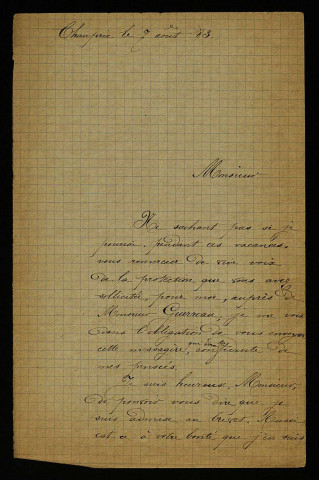 le 7 août 83.
Monsieur
Ne sachant pas si je
pourrai, pendant ces vacances,
vous remercier de vive voix
de la protection que vous avez
sollicitée, pour moi, auprès de
Monsieur je me vois
dans l'obligation de vous envoyer
cette messagère, confidente de
mes pensées.
Je suis heureux, Monsieur,
de pouvoir vous dire que je
suis admise au brevet. Aussi
est-ce à votre bonté que j'en suis